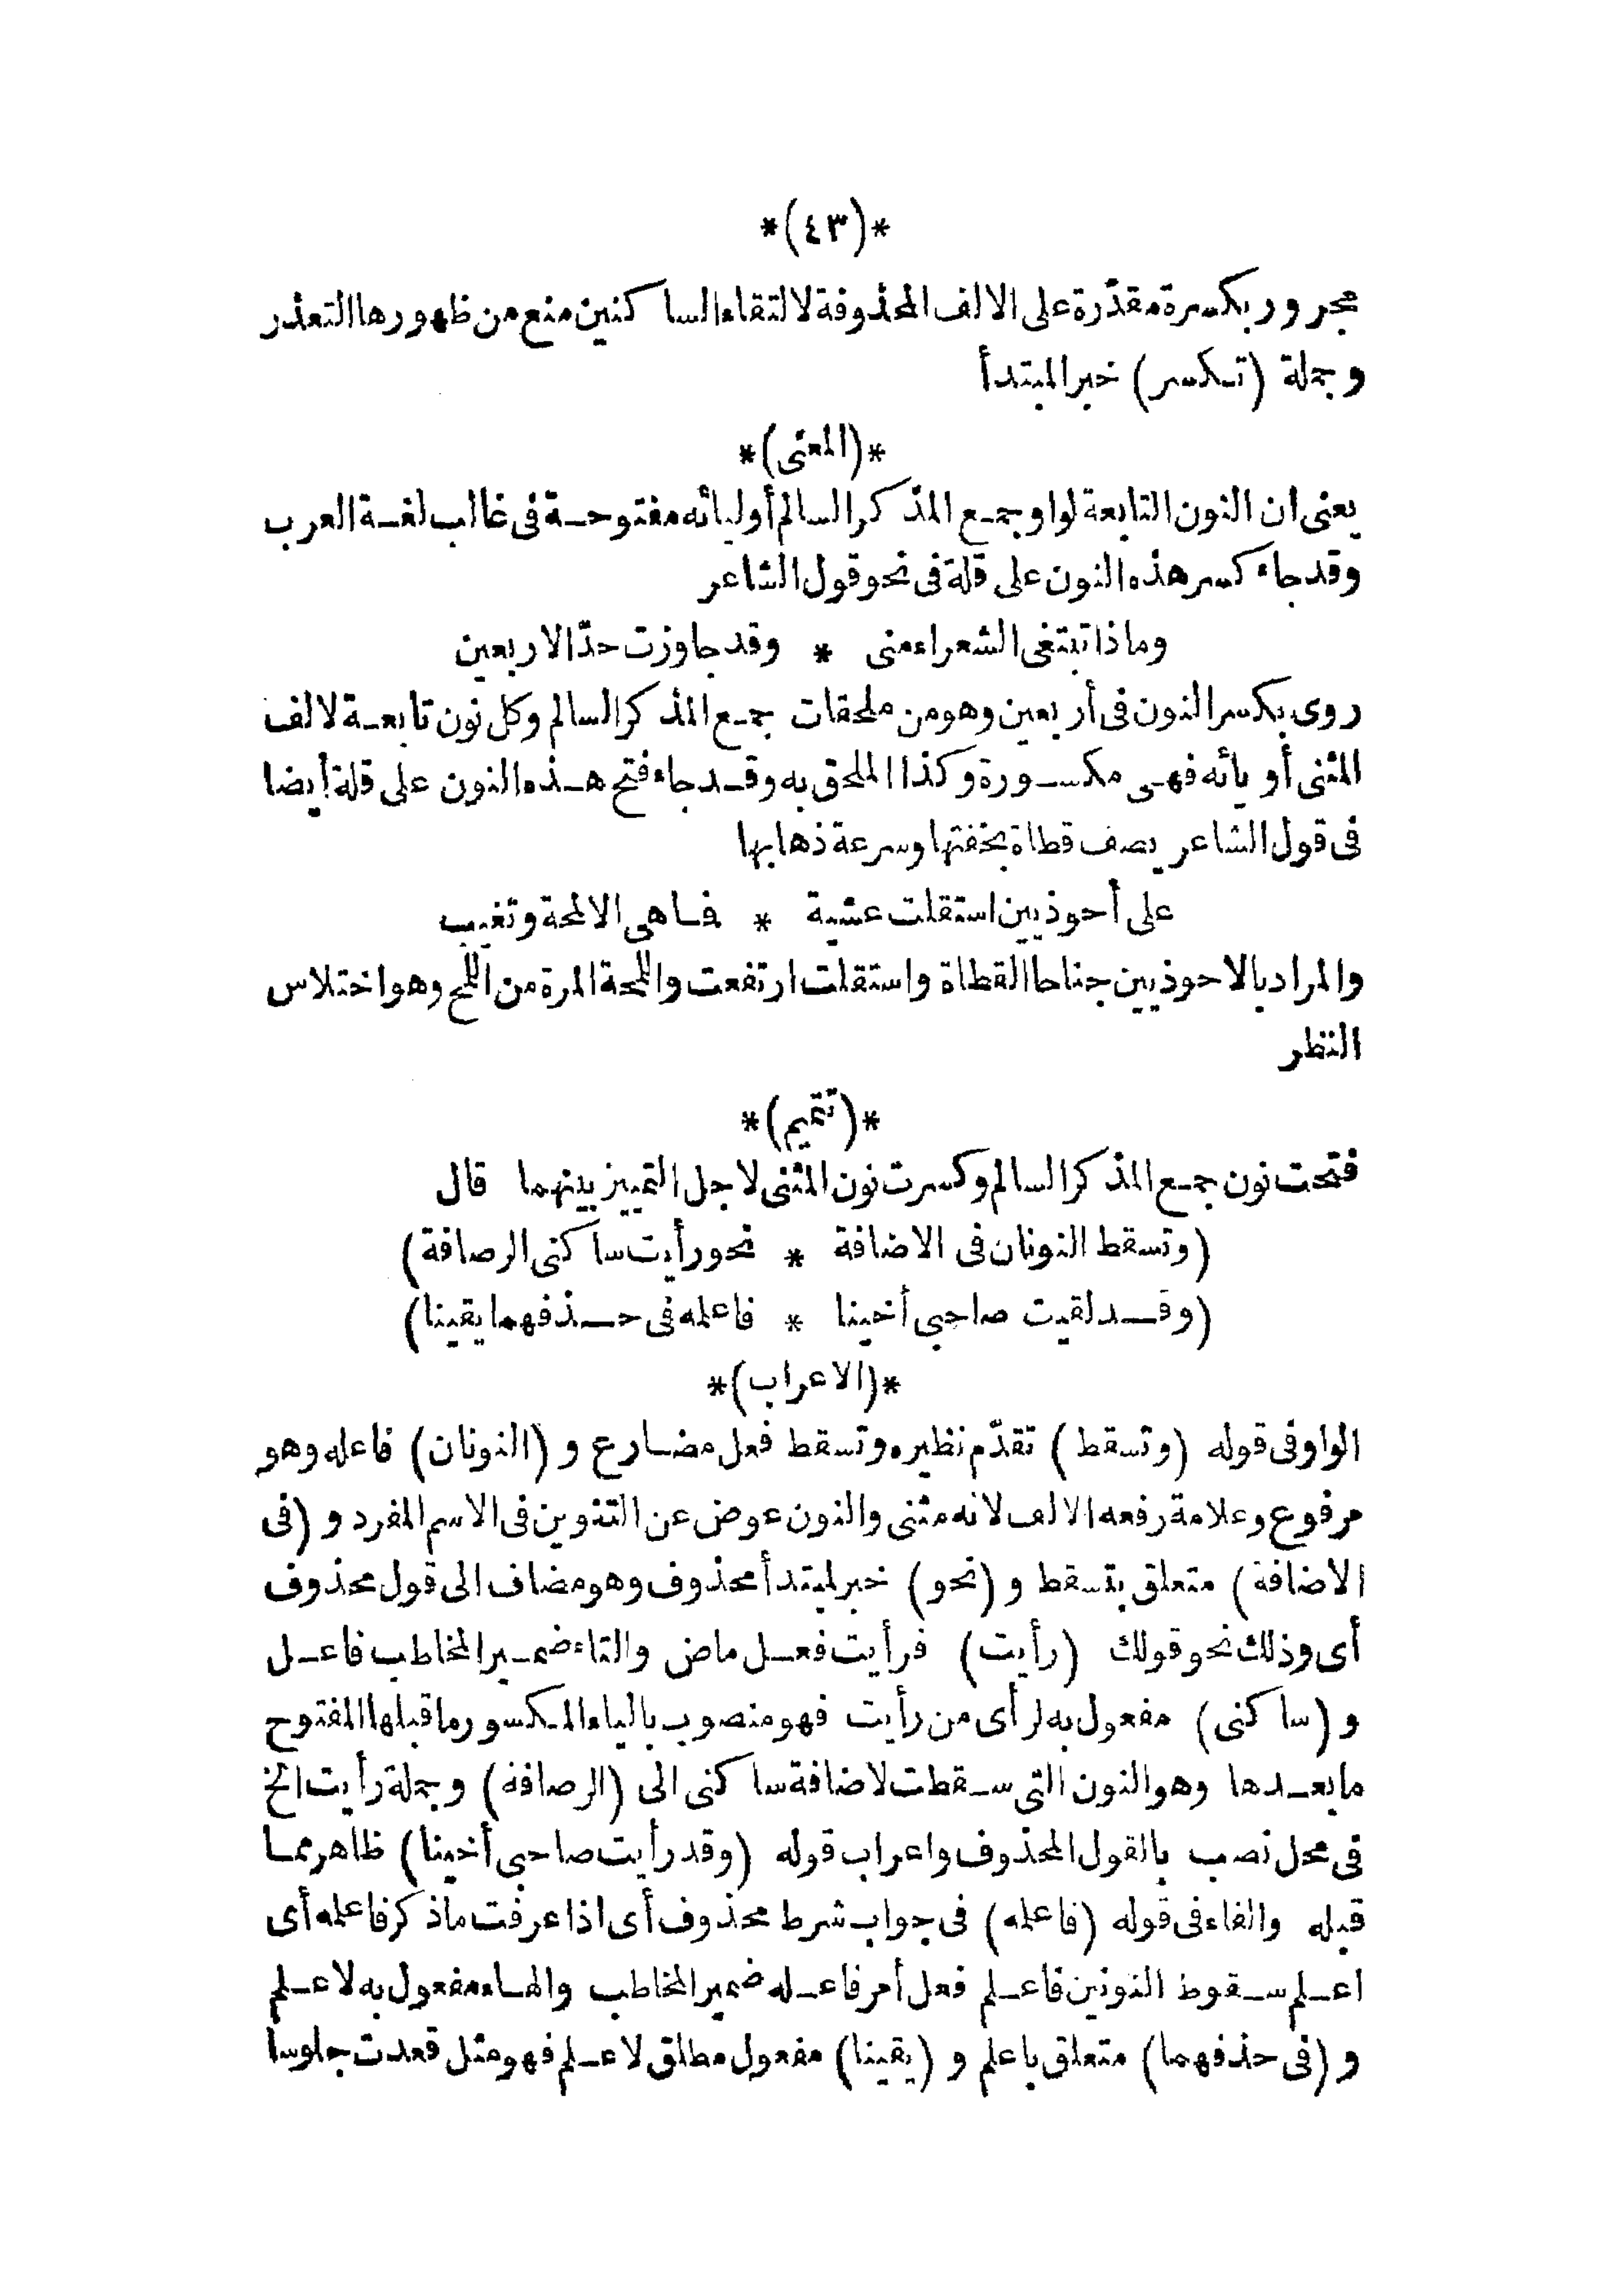 *(٤٣)*
مجرور بكسرة مقدّرة على الالف المحذوفة لالتقاء الساكنين منع من ظهورها التعذر
وجملة (تكسر) خبر المبتدأ
*(المعنى)*
يعنى ان النون التابعة لواو جمع المذكر السالم أوليائه مفتوحة فى غالب لغة العرب
وقد جاء كسر هذه النون على قلة فى نحو قول الشاعر
وماذا تبتغى الشعراء منى * وقد جاوزت حدّ الاربعين
روى بكسر النون فى أربعين وهو من ملحقات جمع المذكر السالم وكل نون تابعة لالف
المثنى أو يائه فهى مكسورة وكذا الملحق به وقد جاء فتح هذه النون على قلة أيضا
فى قول الشاعر يصف قطاة بخفتها وسرعة ذهابها
على أحوذيين استقلت عشية * فاهى الالمحة وتغيب
والمراد بالاحوذيين جناحا القطاة واستقلت ارتفعت واللمحة المرة من اللمح وهو اختلاس
النظر
*(تتميم)*
فتحت نون جمع المذكر السالم وكسرت نون المثنى لاجل التمييز بينهما قال
(وتسقط النونان فى الاضافة * نحو رأيت ساكنى الرصافة)
(وقد لقيت صاحبى أخينا * فاعله فى حذفهما يقينا)
*(الاعراب)*
الواو فى قوله (وتسقط) تقدّم نظيره وتسقط فعل مضارع و (النونان) فاعله وهو
مرفوع وعلامة رفعه الالف لانه مثنى والنون عوض عن التنوين فى الاسم المفرد و (فى
الاضافة) متعلق بتسقط و (نحو) خبر لمبتدأ محذوف وهو مضاف الى قول محذوف
أى وذلك نحو قولك (رأيت) فرأيت فعل ماض والتاء ضمير المخاطب فاعل
و (ساكنى) مفعول به لرأى من رأيت فهو منصوب بالياء المكسور ما قبلها المفتوح
ما بعدها وهو النون التى سقطت لاضافة ساكنى الى (الرصافة) وجملة رأيت الخ
فى محل نصب بالقول المحذوف واعراب قوله (وقد رأيت صاحبى أخينا) ظاهر مما
قبله والفاء فى قوله (فاعله) فى جواب شرط محذوف أى اذا عرفت ما ذكر فاعله أى
اعلم سقوط النونين فاعلم فعل أمر فاعله ضمير المخاطب والهاء مفعول به لاعلم
و (فى حذفهما) متعلق باعلم و (يقينا) مفعول مطلق لاعلم فهو مثل قعدت جلوسا